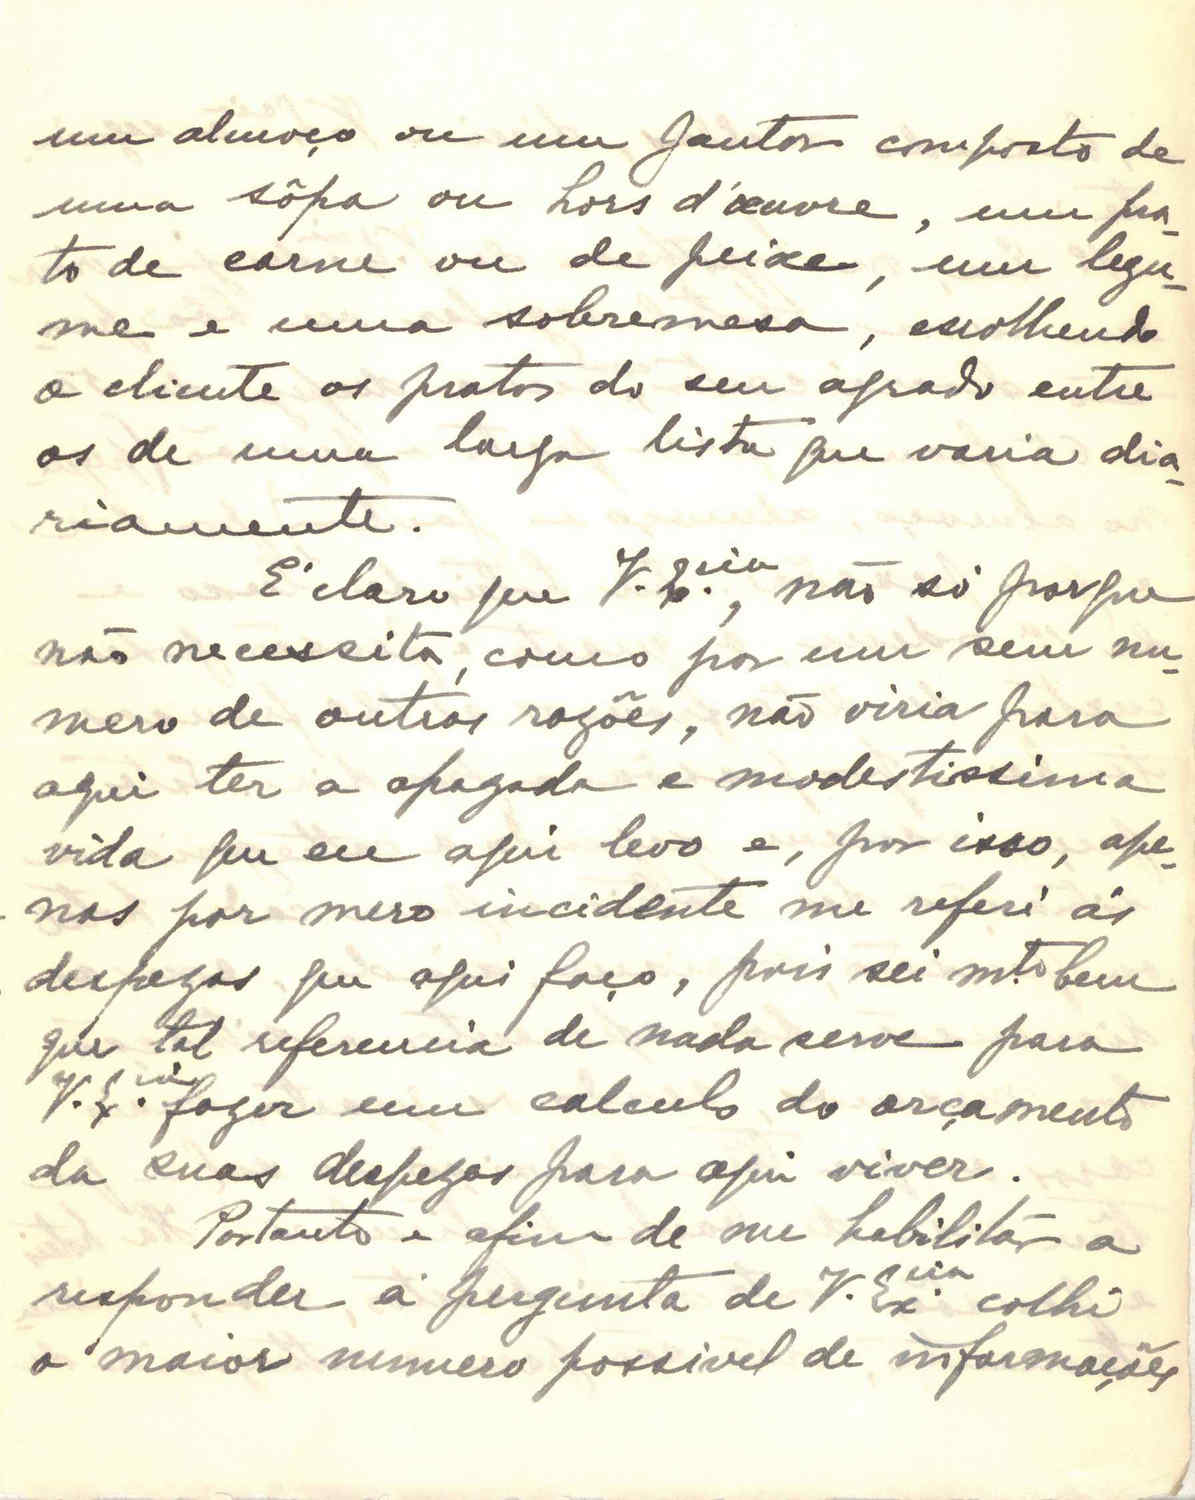 um almoço ou um jantar composto de
uma sôpa ou hors d'œuvre, um pra-
to de carne ou de peixe, um legu-
me e uma sobremesa, escolhendo
o cliente os pratos do seu agrado entre
os de uma larga lista que varia dia-
riamente.
E' claro que V. Ex.cia, não só porque
não necessita, como por um sem nu-
mero de outras razões, não viria para
aqui ter a apagada e modestissima
vida que eu aqui levo e, por isso, ape-
nas por mero incidente me referi ás
despezas que aqui faço, pois sei mto. bem
que tal referencia de nada serve para
V. Ex.cia fazer um calculo do orçamento
da suas despezas para aqui viver.
Portanto e afim de me habilitár a
responder á pergunta de V. Ex.cia colhi
o maior numero possivel de informações